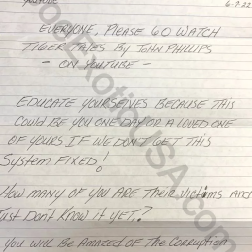 YOUTUBE 6-7-22
EVERYONE, PLEASE GO WATCH
TIGER TALES BY JOHN PHILLIPS
- ON YOUTUBE -
EDUCATE YOURSELVES BECAUSE THIS
COULD BE YOU ONE DAY OR A LOVED ONE
OF YOURS IF WE DON'T GET THIS
System FIXED!
How MANY OF YOU ARE THEIR VICTIMS AND
JUST DON'T KNOW IT YET?
YOU WILL BE AMAZED OF THE CORRUPTION